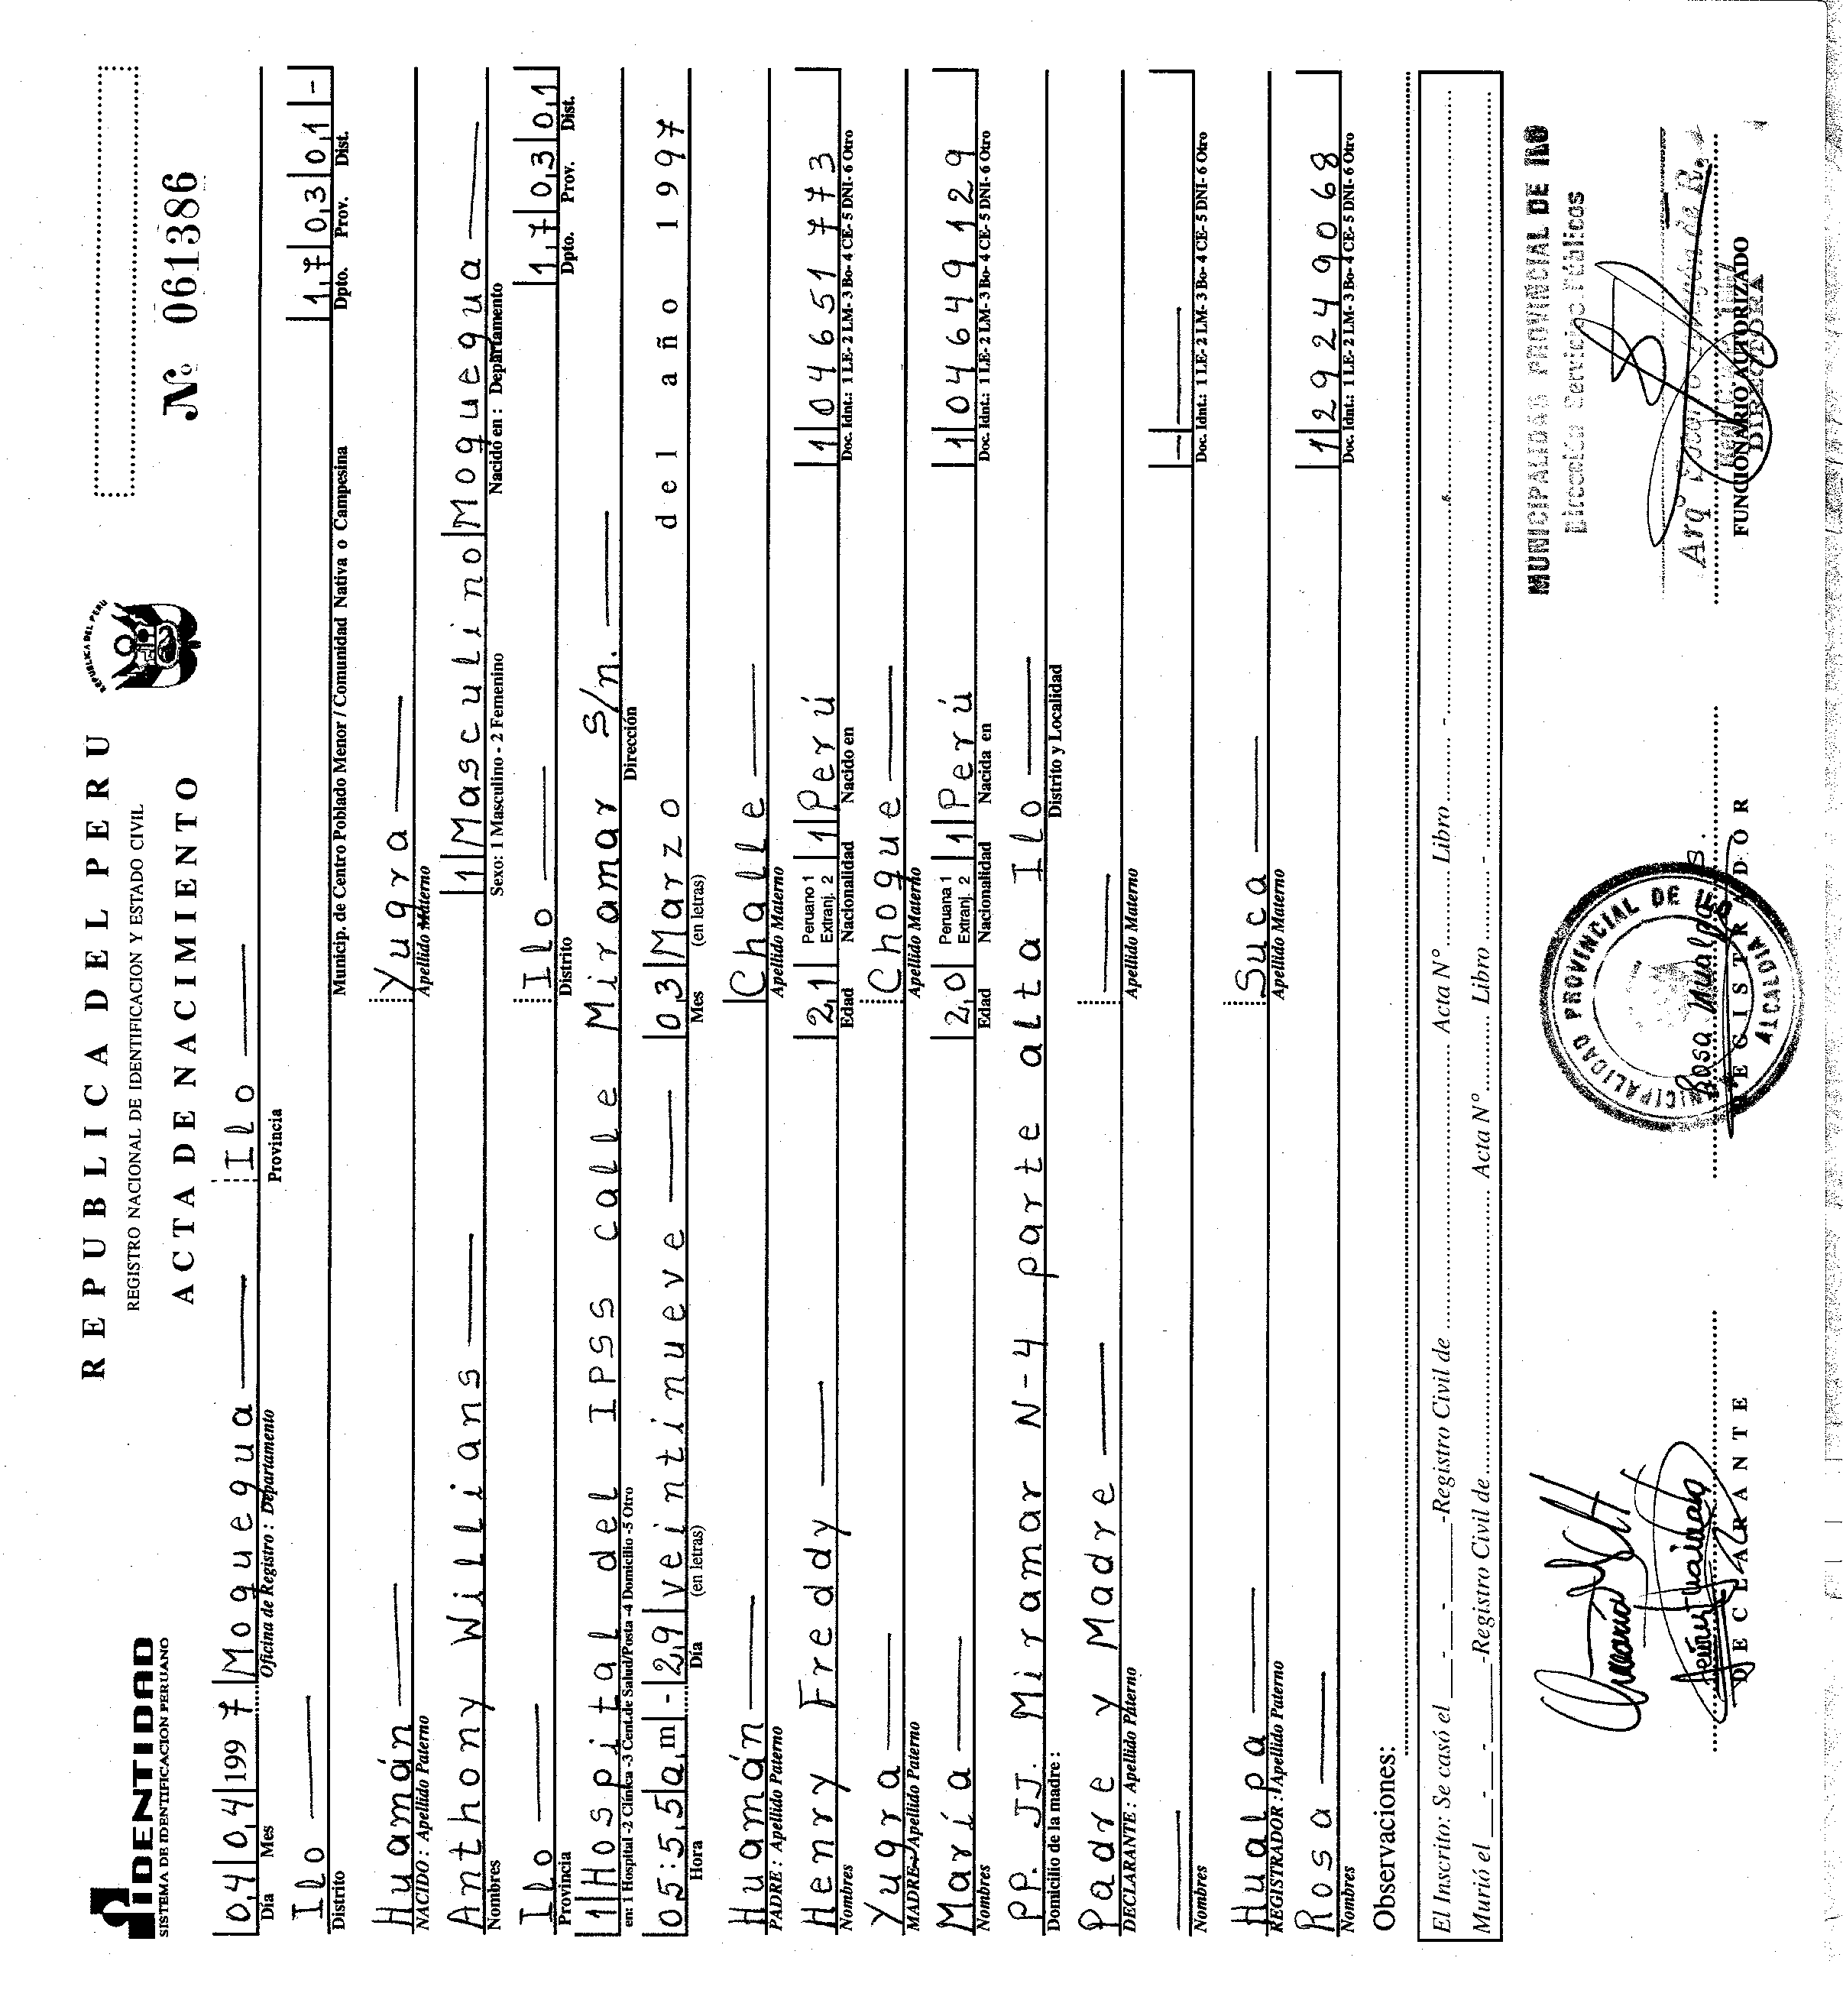 IDENTIDAD
SISTEMA DE IDENTIFICACION PERUANO
REPUBLICA DEL PERU
REGISTRO NACIONAL DE IDENTIFICACION Y ESTADO CIVIL
ACTA DE NACIMIENTO
REPUBLICA DEL PERU
Nº 061386
04 04 199 7 Moquegua Ilo
Día Mes Oficina de Registro : Departamento Provincia
Ilo 17 03 01 -
Distrito Municip. de Centro Poblado Menor / Comunidad Nativa o Campesina Dpto. Prov. Dist.
Huamán Yugra
NACIDO : Apellido Paterno Apellido Materno
Anthony Willians 1 Masculino Moquegua
Nombres Sexo: 1 Masculino - 2 Femenino Nacido en : Departamento
Ilo Ilo 17 03 01
Provincia Distrito Dpto. Prov. Dist.
1 Hospital del IPSS calle Miramar S/n.
en: 1 Hospital -2 Clínica -3 Cent.de Salud/Posta -4 Domicilio -5 Otro Dirección
05:55 a,m - 29 veintinueve 03 Marzo del año 1997
Hora Día (en letras) Mes (en letras)
Huamán Challe
PADRE : Apellido Paterno Apellido Materno
Henry Freddy 21 Peruano 1 Extranj. 2 1 Perú 1 04651773
Nombres Edad Nacionalidad Nacido en Doc. Idnt.: 1 LE- 2 LM- 3 Bo- 4 CE- 5 DNI- 6 Otro
Yugra Choque
MADRE: Apellido Paterno Apellido Materno
María 20 Peruana 1 Extranj. 2 1 Perú 1 04649129
Nombres Edad Nacionalidad Nacida en Doc. Idnt.: 1 LE- 2 LM- 3 Bo- 4 CE- 5 DNI- 6 Otro
PP. JJ. Miramar N-4 parte alta Ilo
Domicilio de la madre : Distrito y Localidad
Padre y Madre
DECLARANTE : Apellido Paterno Apellido Materno
-
Nombres Doc. Idnt.: 1 LE- 2 LM- 3 Bo- 4 CE- 5 DNI- 6 Otro
Hualpa Suca
REGISTRADOR : Apellido Paterno Apellido Materno
Rosa 1 29249068
Nombres Doc. Idnt.: 1 LE- 2 LM- 3 Bo- 4 CE- 5 DNI- 6 Otro
Observaciones:
El Inscrito: Se casó el - - -Registro Civil de Acta Nº Libro -
Murió el - - -Registro Civil de Acta Nº Libro -
MUNICIPALIDAD PROVINCIAL DE ILO
Dirección Servicios Públicos
MUNICIPALIDAD PROVINCIAL DE ILO
ALCALDIA
Rosa Hualpa S.
Arqº
DECLARANTE
REGISTRADOR
FUNCIONARIO AUTORIZADO
DIRECTORA